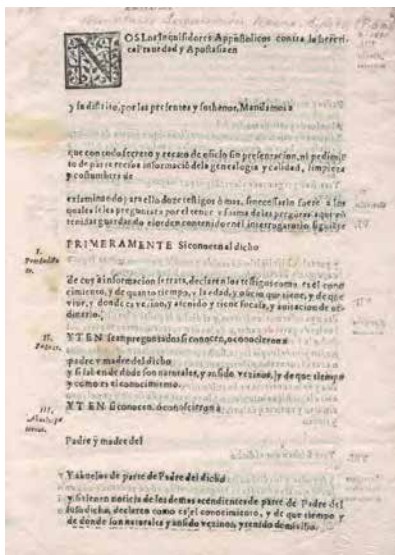 NOS Los Inquisidores Appostolicos contra la hereti-
ca prauedad y Apostasia en
y su distrito, por las presentes y su thenor, Mandamos a
que con todo secreto y recato de oficio sin presentacion, ni pedimiẽ
to de parte reciba informació dela genealogia y calidad, limpieza
y costumbres de
examinando para ello doze testigos o mas, si necessario fuere a los
quales se les preguntara por el tenor y forma de las
guardando el orden contenido enel interrogatorio siguiẽte
I.
PRIMERAMENTE Si conocen al dicho
de cuya informacion se trata, declaren los testigos como es el cono
cimiento, y de quanto tiempo, y la edad, y oficio que tiene, y de que
viue, y donde es vezino, y a tenido y tiene su casa, y auitacion de or-
dinario.
II.
Padres.
YTEN sean preguntados si conocen, o conocieron a
padre y madre del dicho
y si saben de dõde son naturales, y an sido vezinos, y de que tiempo
y como es el conocimiento.
III.
YTEN si conocen, o conocieron a
Padre y madre del
Y abuelos de parte de Padre del dicho
y si tienen noticia de los demas acendientes de parte de Padre del
susodicho, declaren como es el conocimiento, y de que tiempo y
de donde son naturales y an sido vezinos, y tenido domicilio.